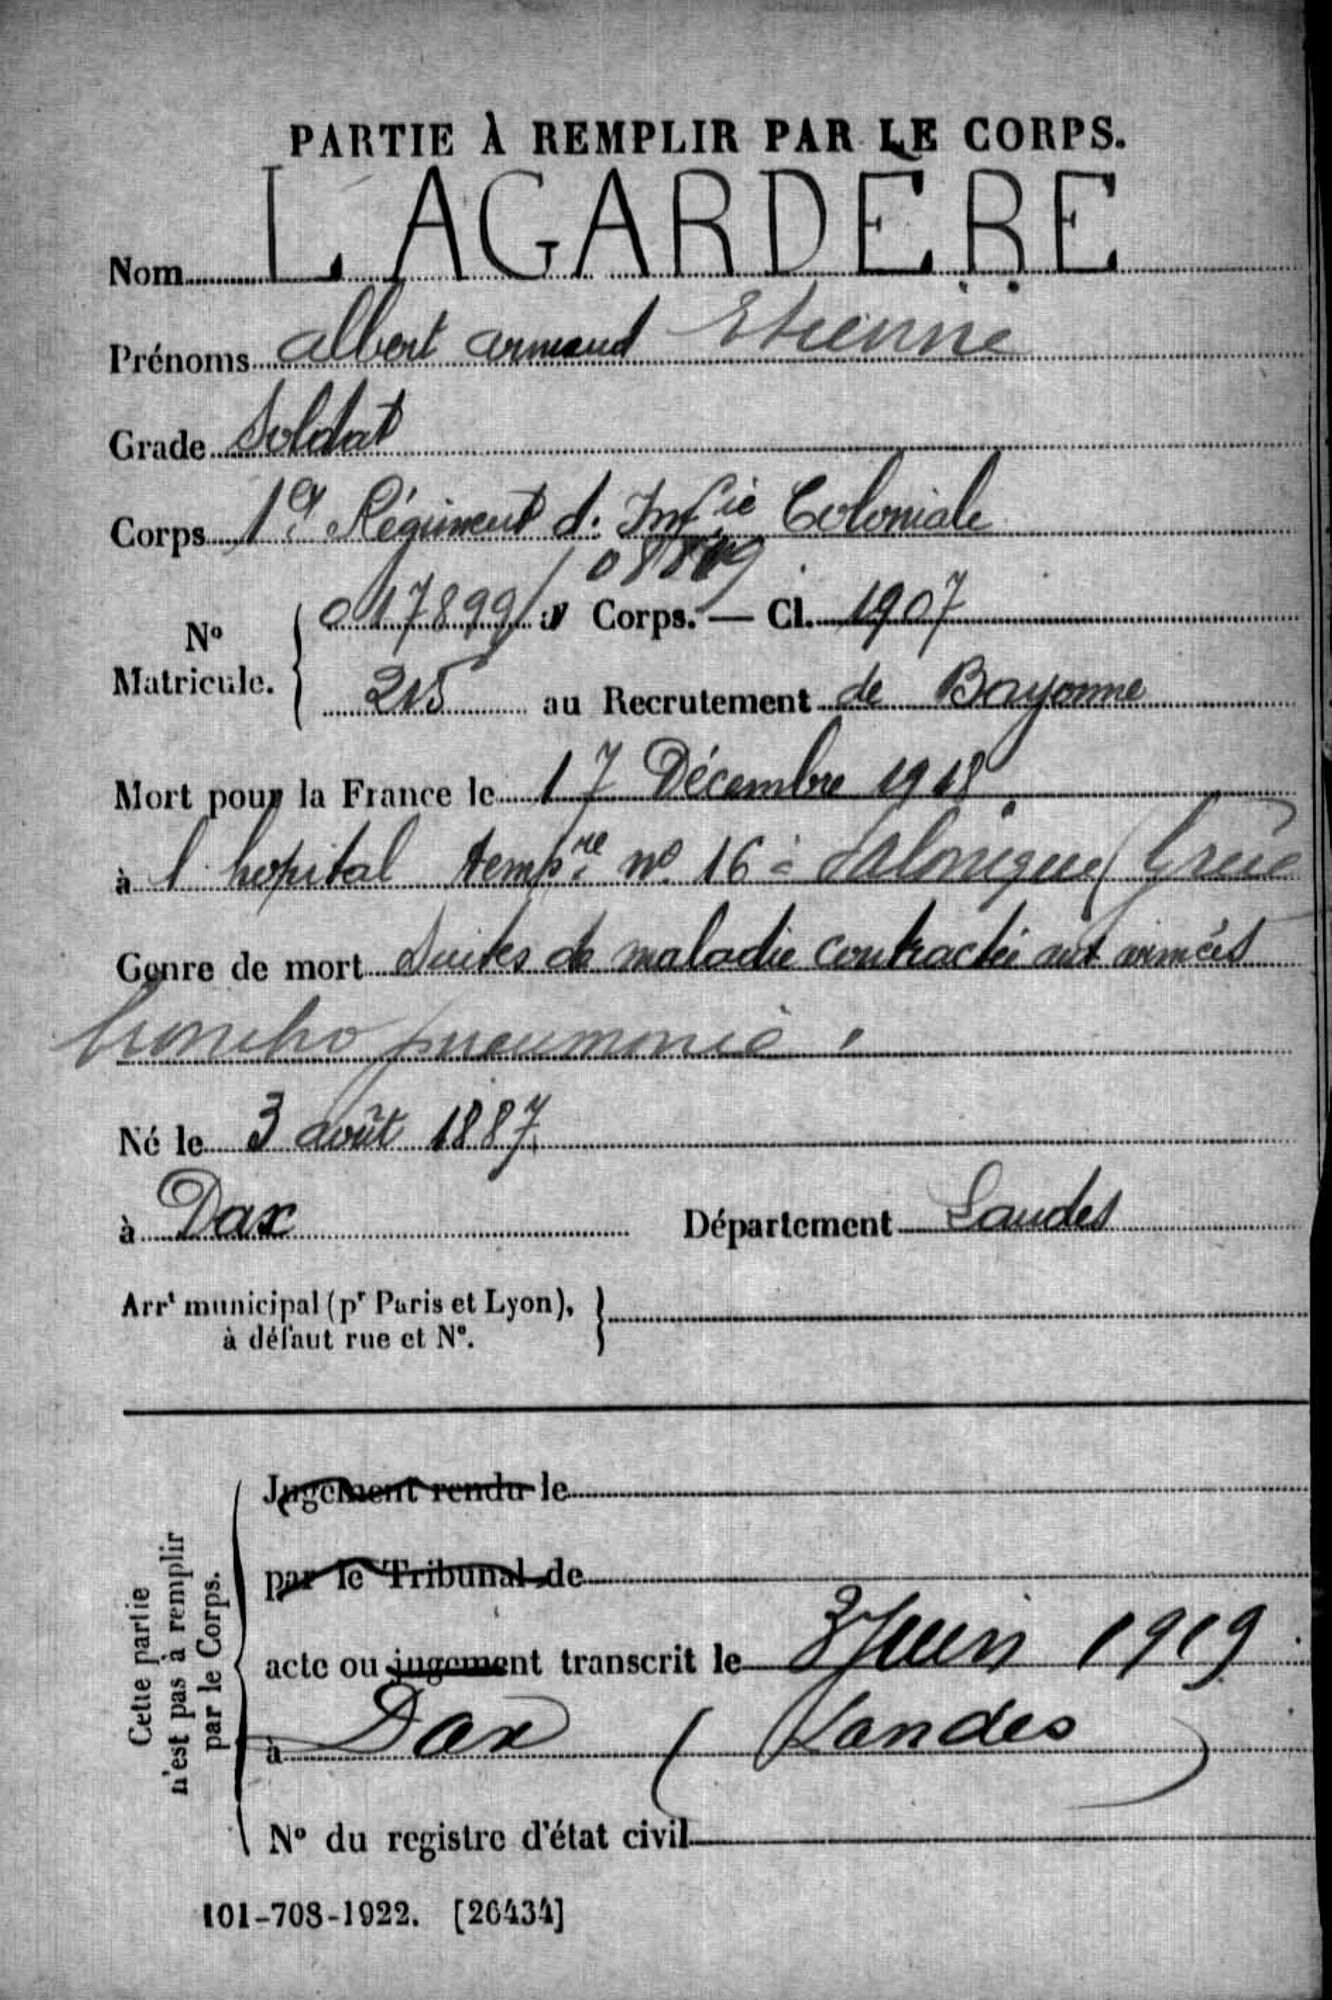 PARTIE À REMPLIR PAR LE CORPS.
Nom LAGARDÈRE
Prénoms Albert Armand Etienne
Grade Soldat
Corps 1er Régiment d'Infie Coloniale
N° Matricule. 017899 / 08819 au Corps. — Cl. 1907
215 au Recrutement de Bayonne
Mort pour la France le 17 Décembre 1918
à l'hopital tempre no 16 à Salonique (Grèce
Genre de mort Suites de maladie contractée aux armées
broncho pneumonie.
Né le 3 août 1887
à Dax Département Landes
Arrt municipal (pr Paris et Lyon),
à défaut rue et N°.
Cette partie
n'est pas à remplir
par le Corps.
Jugement rendu le
par le Tribunal de
acte ou jugement transcrit le 3 Juin 1919
à Dax (Landes)
N° du registre d'état civil
101-708-1922. [26434]